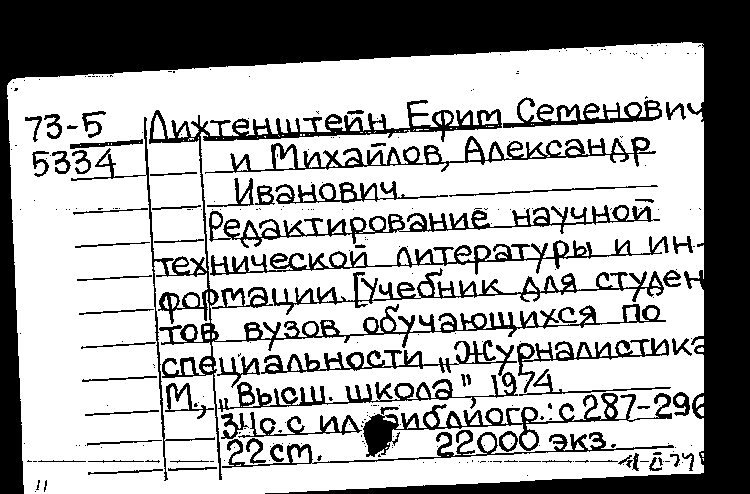 73-5 Лихтенштейн, Ефим Семенович
5334 и Михайлов, Александр
Иванович.
Редактирование научной
технической литературы и ин-
формации. [Учебник для студен
тов вузов, обучающихся по
специальности „Журналистика
М., „Высш. школа", 1974.
с ил Библиогр.: с 287-296
22 ст. 22000 экз.